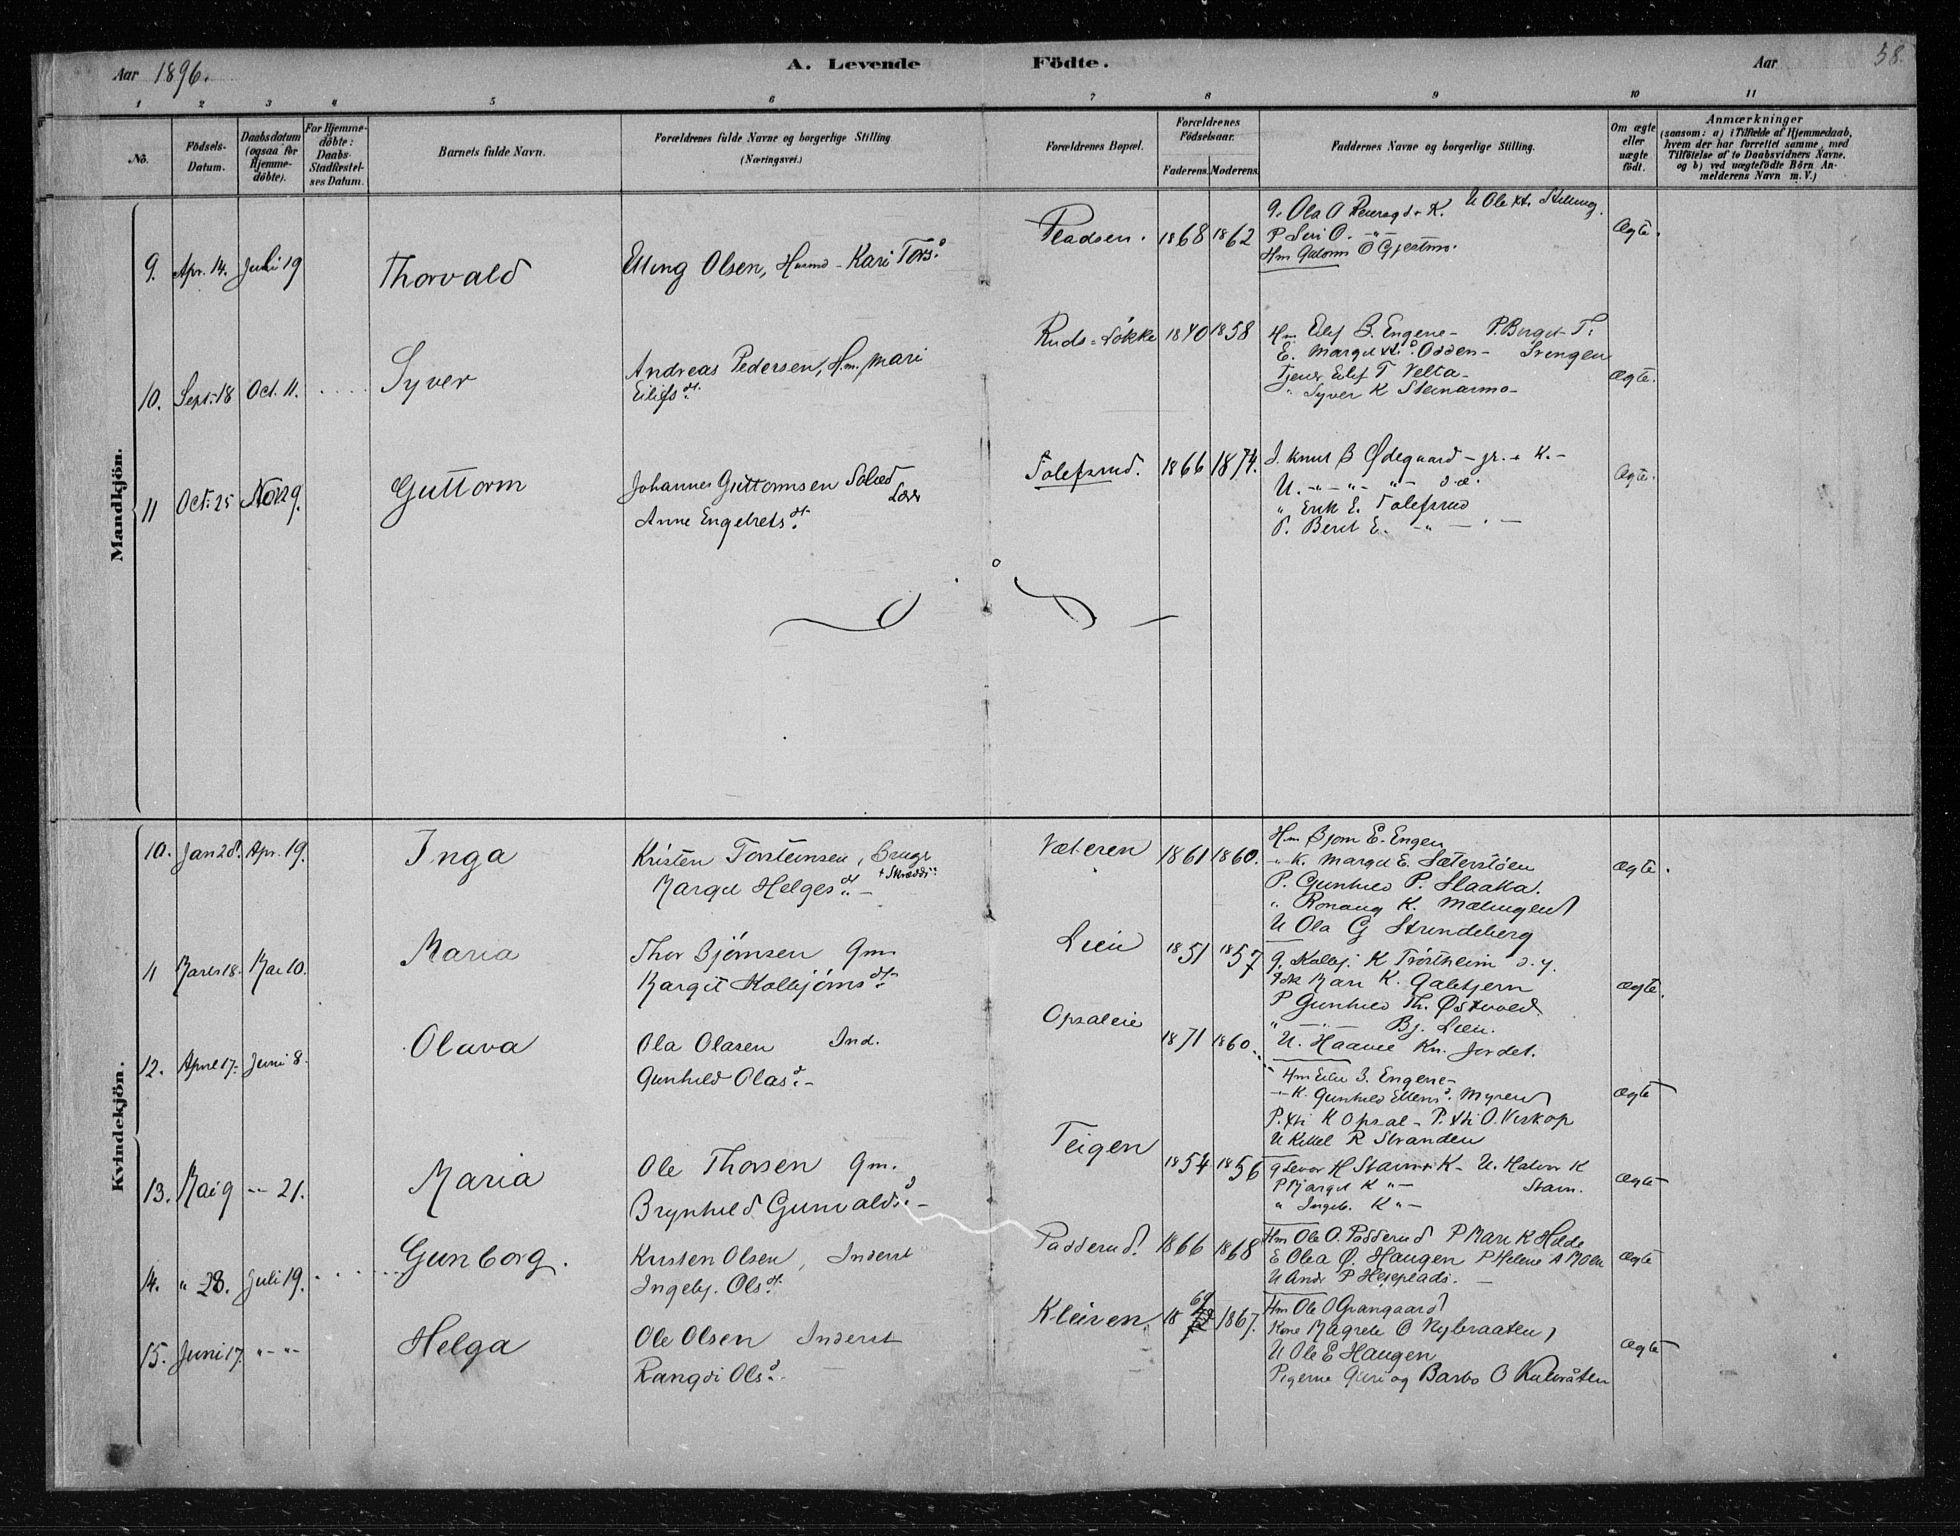 Aar 1896.
A. Levende Födte.
Aar
58.
1 2 3 4 5 6 7 8 9 10 11
No.
Födsels-Datum.
Daabsdatum (ogsaa for Hjemme-döbte).
For Hjemme-döbte: Daabs-Stadfæstel-ses Datum.
Barnets fulde Navn.
Forældrenes fulde Navne og borgerlige Stilling (Næringsvei.)
Forældrenes Bopæl.
Forældrenes Födselsaar.
Faderens. Moderens.
Faddernes Navne og borgerlige Stilling.
Om ægte eller uægte födt.
Anmærkninger
(saasom: a) i Tilfælde af Hjemmedaab, hvem der har forrettet samme, med Tilföielse af to Daabsvidners Navne, og b) ved uægtefödte Börn Anmelderens Navn m. V.)
Mandkjön.
9. Apr. 14. Juli 19 Thorvald
Elling Olsen, Husmd - Kari Torsd.
Pladsen. 1868 1862
P Siri O. -"-
Hm Guttorm O Gjestmo.
Ægte.
10. Sept. 18 Oct. 11. Syver
Andreas Pedersen, Hm. Mari
Eilifsdt.
Ruds-Løkke 1840 1858
Hm Eilef B. Engene - P. Berget T.
E. Margit Odden - Svingen
Tjener Eilef T Velta -
" Syver K Steinarmo -
Ægte.
11 Oct. 25 Nov 29. Guttorm
Johannes Guttormsen
Anne Engebretsdt.
Tolefsrud. 1866 1874.
S. Knut B Ødegaard - gr. + K. -
U. -"- -"- -"- d.æ.
" Erik E. Tolefsrud
P. Berit E. -"-
Ægte.
Kvindekjön.
10. Jan 28. Apr. 19. Inga
Kristen Torsteinsen, Brugr
+ Skrædd:
Margit Helgesdt. -
Væteren 1861 1860.
Hm Bjørn E. Engen
" K. Margit E. Sæterstøen
P. Gunhild P. Haaka.
" Ronaug K. Mælingen
U Ola G Strandeberg
Ægte.
11 Marts 18. Mai 10. Maria
Thor Bjørnsen Gm
Margit Kolbjørnsdtr.
Lien 1851 1857
G. Kolbj. K Trøstheim d.y.
Fdk Mari K. Galtjern
P Gunhild Th. Østvold
" -"- Bj. Lien.
U. Haavel Kn. Jordet.
Ægte.
12. April 17. Juni 8. Olava
Ola Olasen Ind.
Gunhild Olasd. -
Opsaleie 1871 1860.
Hm Eilif B. Engene -
" K. Gunhild Ellensd. Myren
P. K Opsal - P. O. Viskop
U Kittel R Stranden
Ægte
13. Mai 9 -"- 21. Maria
Ole Thorsen Gm.
Brynhild Gunvaldsd. -
Teigen 1854 1856
G Levor H Stavn + K - U. Halvor K
P Margit K "- Stavn.
" Ingeb. K "-
Ægte
14. " 28. Juli 19. Gunborg.
Kristen Olsen, Inderst
Ingebj. Olsdt.
Padderud. 1866 1868
Hm Ole O. Padderud P Mari K Hilde
E Olea Ø. Haugen P Helene A Moen
U Andr P Heieplads. -
Ægte
15. Juni 17. "-"- Helga
Ole Olsen Inderst
Rangdi Olsd.
Kleiven 1869 1867.
Hm Ole O Grangaard
Kone Magrete O Nybraaten
U Ole E Haugen
Pigerne Guri og Barbo O Kulbråten
Ægte